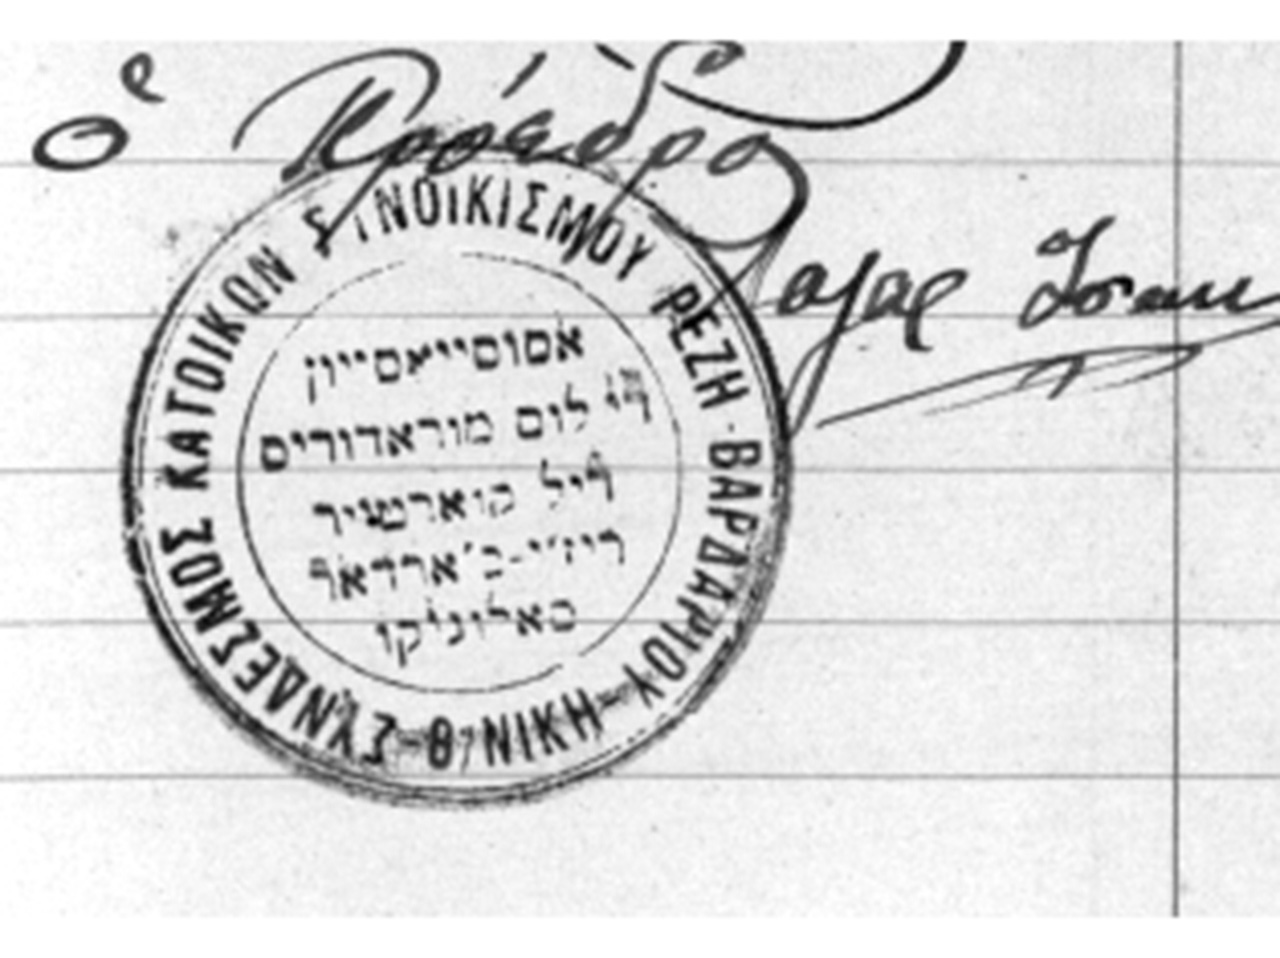 ὁ Πρόεδρος
ΣΥΝΔΕΣΜΟΣ ΚΑΤΟΙΚΩΝ ΣΥΝΟΙΚΙΣΜΟΥ ΡΕΖΗ ΒΑΡΔΑΡΙΟΥ - Θ/ΝΙΚΗ -
אסוסייאסייון
די לוס מוראדוריס
דיל קוארטייר
ריז׳י-ב׳ארדאר
סאלוניקו